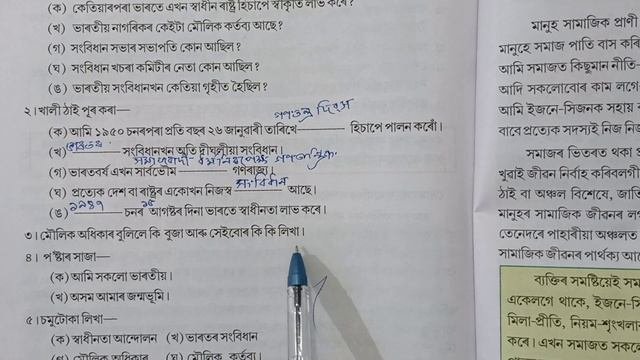 (ক) কেতিয়াৰপৰা ভাৰতে এখন স্বাধীন ৰাষ্ট্ৰ হিচাপে স্বীকৃতি লাভ কৰে?
(খ) ভাৰতীয় নাগৰিকৰ কেইটা মৌলিক কৰ্তব্য আছে?
(গ) সংবিধান সভাৰ সভাপতি কোন আছিল?
(ঘ) সংবিধান খচৰা কমিটীৰ নেতা কোন আছিল?
(ঙ) ভাৰতীয় সংবিধানখন কেতিয়া গৃহীত হৈছিল?
২। খালী ঠাই পূৰ কৰা—
গণতন্ত্ৰ দিৱস
(ক) আমি ১৯৫০ চনৰপৰা প্ৰতি বছৰ ২৬ জানুৱাৰী তাৰিখে হিচাপে পালন কৰোঁ।
(খ) ভাৰতৰ সংবিধানখন অতি দীঘলীয়া সংবিধান।
সমাজবাদী ধৰ্মনিৰপেক্ষ গণতান্ত্ৰিক
(গ) ভাৰতবৰ্ষ এখন সাৰ্বভৌম গণৰাজ্য।
সংবিধান
(ঘ) প্ৰত্যেক দেশ বা ৰাষ্ট্ৰৰ একোখন নিজস্ব আছে।
(ঙ) ১৯৪৭ চনৰ ১৫ আগষ্টৰ দিনা ভাৰতে স্বাধীনতা লাভ কৰে।
৩। মৌলিক অধিকাৰ বুলিলে কি বুজা আৰু সেইবোৰ কি কি লিখা।
৪। পষ্টাৰ সাজা—
(ক) আমি সকলো ভাৰতীয়।
(খ) অসম আমাৰ জন্মভূমি।
৫। চমুটোকা লিখা—
(ক) স্বাধীনতা আন্দোলন (খ) ভাৰতৰ সংবিধান
(গ) মৌলিক অধিকাৰ (ঘ) মৌলিক কৰ্তব্য।
মানুহ সামাজিক প্ৰাণী
মানুহে সমাজ পাতি বাস কৰি
আমি সমাজত কিছুমান নীতি-
আদি সকলোবোৰ কাম লগে
আমি ইজনে-সিজনক সহায়
বাবে প্ৰত্যেক সদস্যই নিজ নিজ
সমাজৰ ভিতৰত থকা
খুৱাই জীৱন নিৰ্বাহ কৰিবলগী
ঠাই বা অঞ্চল বিশেষে, জাতি
মানুহৰ সামাজিক জীৱনৰ
তেনেদৰে পাহাৰীয়া অঞ্চলত
সামাজিক জীৱনৰ পাৰ্থক্য
ব্যক্তিৰ সমষ্টিয়েই
একেলগে থাকে, ইজনে-সি
মিলা-প্ৰীতি, নিয়ম-শৃংখলা
কৰে। এখন সমাজত সকলো